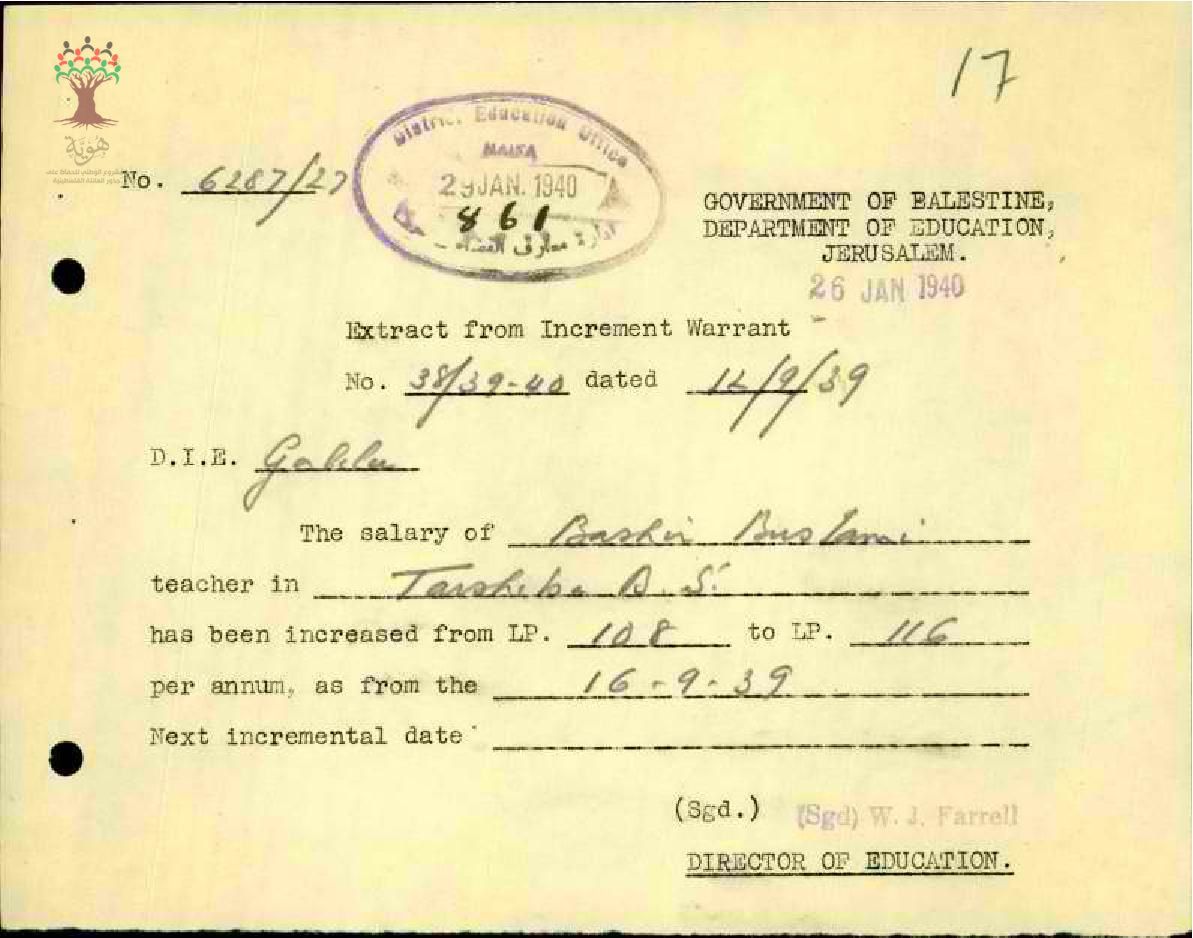 17
هوية
No. 6287/27
District Education Office
HAIFA
29 JAN. 1940
861
GOVERNMENT OF BALESTINE,
DEPARTMENT OF EDUCATION,
JERUSALEM.
26 JAN 1940
Extract from Increment Warrant
No. 38/39-40 dated 12/9/39
D.I.E.
The salary of Bashir Bustami
teacher in Tarshiha B.S.
has been increased from LP. 108 to LP. 116
per annum, as from the 16-9-39
Next incremental date
(Sgd.) (Sgd) W. J. Farrell
DIRECTOR OF EDUCATION.